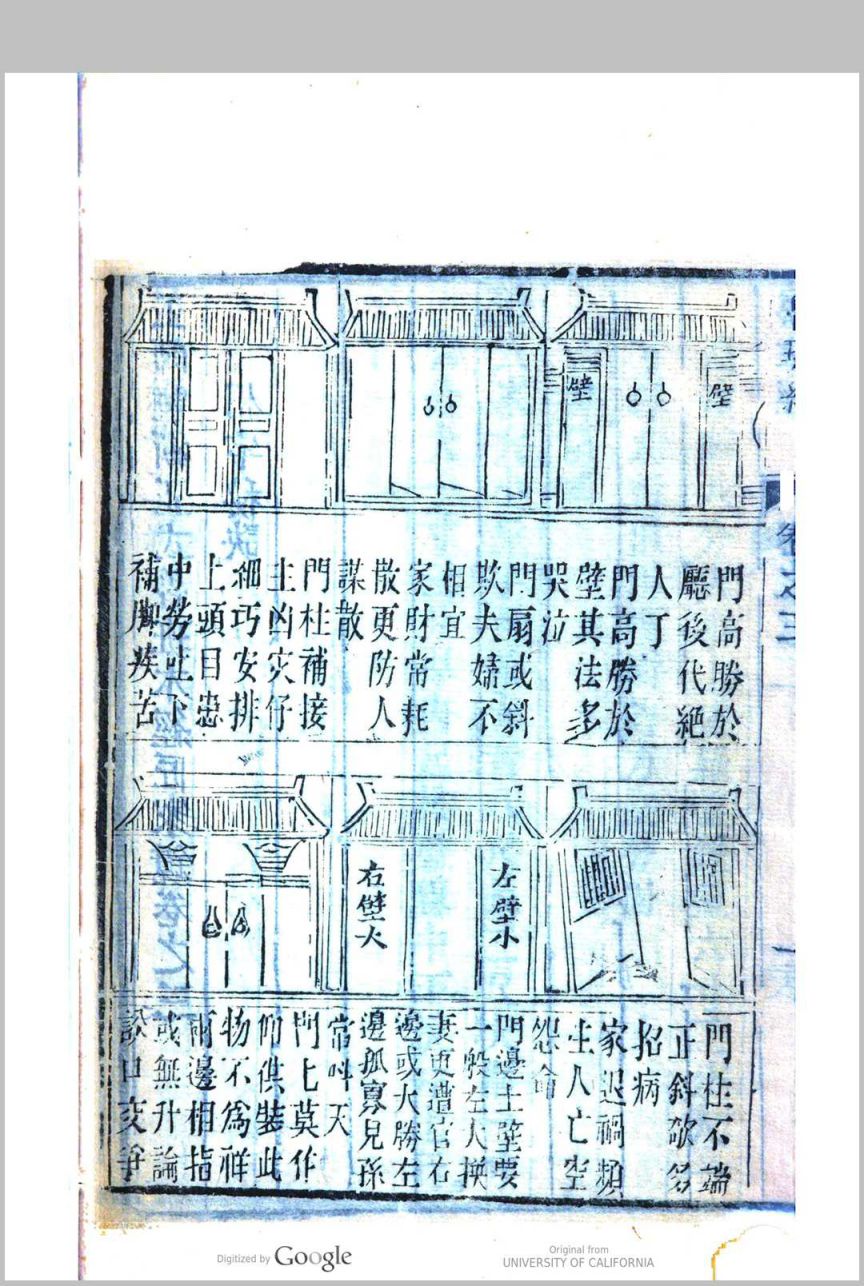 壁
壁
門高勝於
廳後代絕
人丁
門高勝於
壁其法多
哭泣
門扇或斜
欺夫婦不
相宜
家財常耗
散更防人
謀散
門柱補接
主凶灾仔
細巧安排
上頭目患
中勞吐下
補脾疾苦
左壁小
右壁大
門柱不端
正斜欹多
招病
家退禍頻
生人亡空
怨
門邊土壁要
一般左大換
妻更遭官右
邊或大勝左
邊孤寡兒孫
常叫天
門上莫作
仰供裝此
物不為祥
兩邊相指
或無升論
訟口交爭
卷之三
Digitized by Google
Original from
UNIVERSITY OF CALIFORNIA